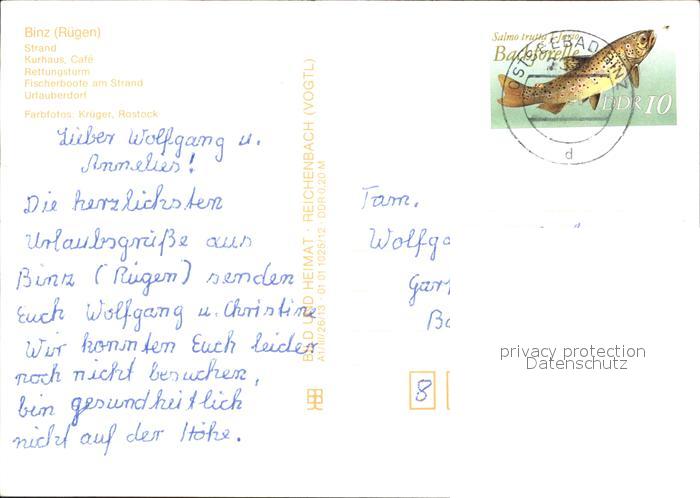 Binz (Rügen)
Strand
Kurhaus, Café
Rettungsturm
Fischerboote am Strand
Urlauberdorf
Farbfotos: Krüger, Rostock
Lieber Wolfgang u.
Annelies!
Die herzlichsten
Urlaubsgrüße aus
Binz (Rügen) senden
Euch Wolfgang u. Christine
Wir konnten Euch leider
noch nicht besuchen,
bin gesundheitlich
nicht auf der Höhe.
BILD UND HEIMAT · REICHENBACH (VOGTL)
A1/III/26/13 01 01 1026/12 DDR 0,20 M
Salmo trutta f. fario
Bachforelle
DDR 10
OSTSEEBAD BINZ
d
Fam.
Wolfg
Gar
B
8
privacy protection
Datenschutz